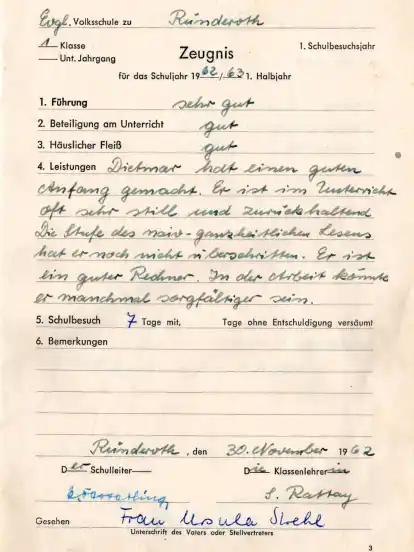 Evgl. Volksschule zu Ründeroth
1 Klasse
Unt. Jahrgang
Zeugnis
1. Schulbesuchsjahr
für das Schuljahr 1962/63 1. Halbjahr
1. Führung sehr gut
2. Beteiligung am Unterricht gut
3. Häuslicher Fleiß gut
4. Leistungen Dietmar hat einen guten
Anfang gemacht. Er ist im Unterricht
oft sehr still und zurückhaltend
Die Stufe des naiv-ganzheitlichen Lesens
hat er noch nicht überschritten. Er ist
ein guter Rechner. In der Arbeit könnte
er manchmal sorgfältiger sein.
5. Schulbesuch 7 Tage mit, Tage ohne Entschuldigung versäumt
6. Bemerkungen
Ründeroth, den 30. November 1962
Der Schulleiter
Die Klassenlehrerin
S. Rattay
Gesehen Frau Ursula Strehl
Unterschrift des Vaters oder Stellvertreters
3